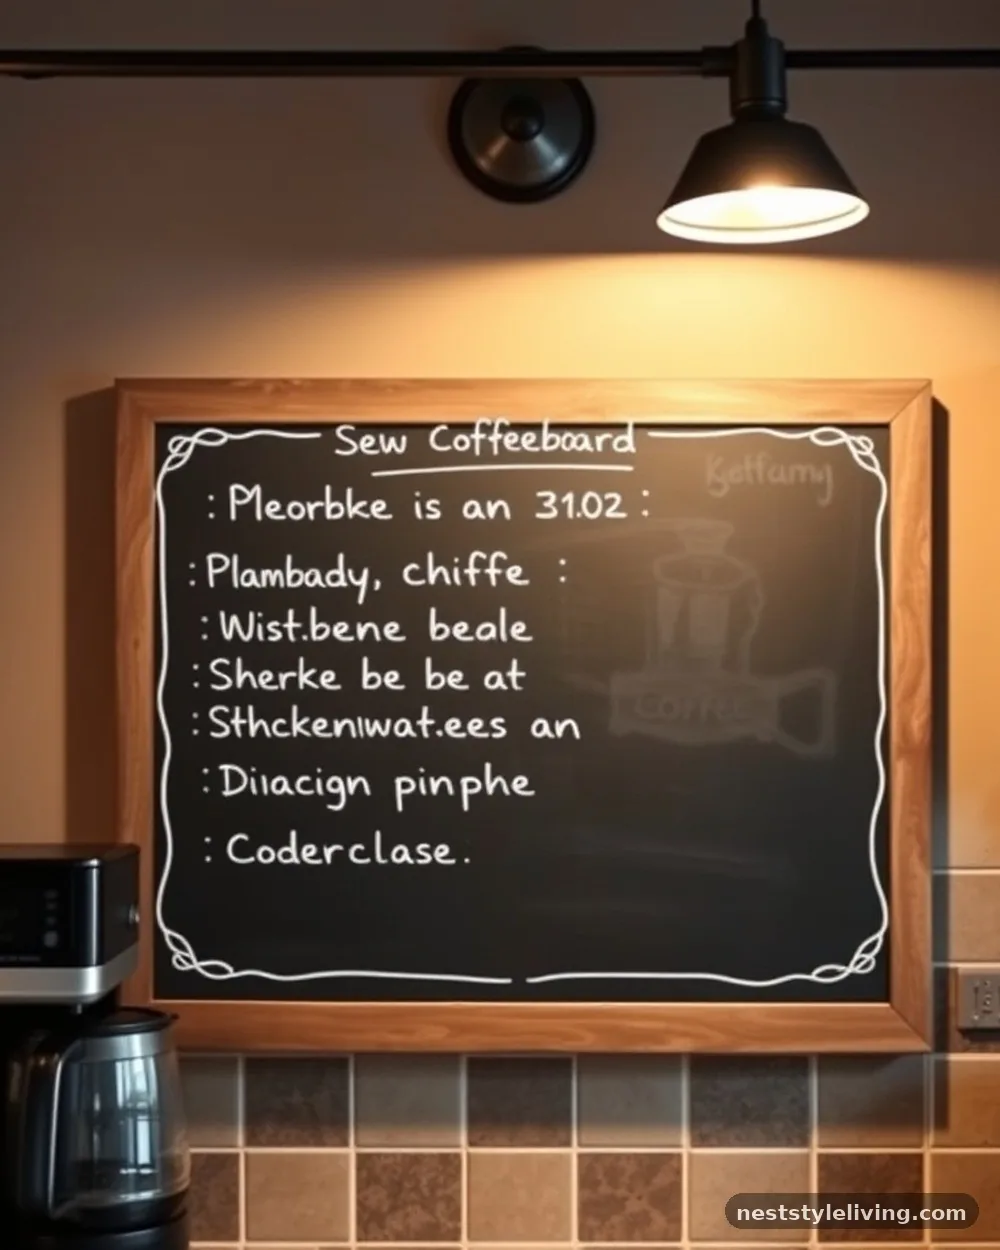 Sew Coffeeboard
Kjetfamy
: Pleorbke is an 31.02 :
: Plambady, chiffe :
: Wist.bene beale
: Sherke be be at
: Sthckenıwat.ees an
Coffee
: Dıiacign pinphe
: Coderclase.
neststyleliving.com